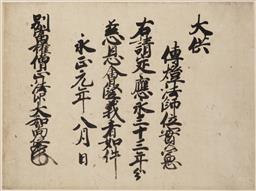 大供
傳燈法師位實憲
右請定應永三十三年分
慈恩會竪義者如件
永正元年八月日
別當權僧正法印大和尚位